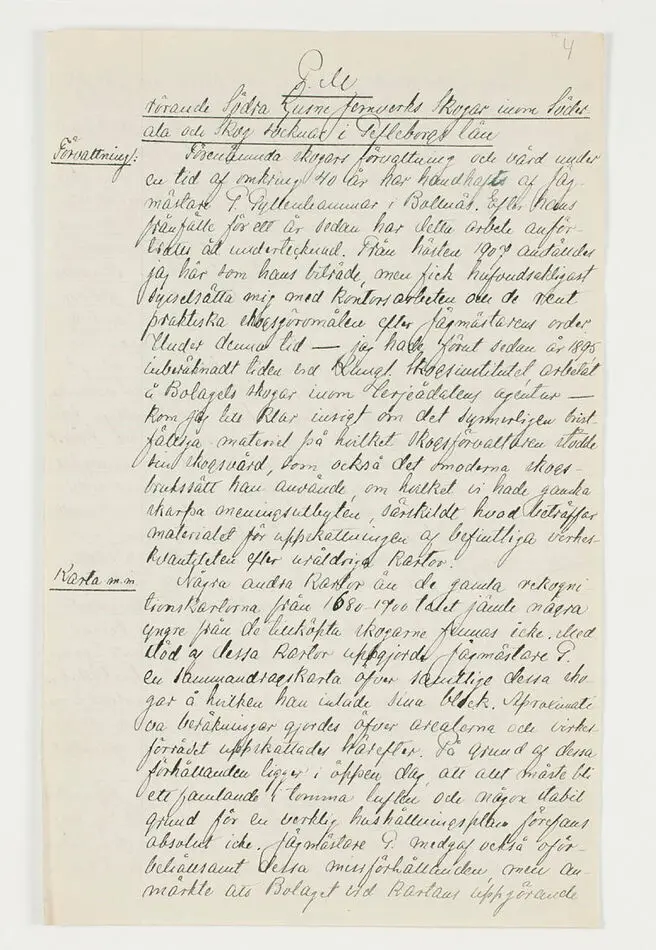 4
P. M
rörande Södra Ljusne Jernverks Skogar inom Söder
ala och Skog socknar i Gefleborgs län
Förvaltning:
Förenämnda skogars förvaltning och vård under
en tid af omkring 40 år har handhafts af Jäg-
mästare P. Gyllenhammar i Bollnäs. Efter hans
frånfälle för ett år sedan har detta arbete anför-
trotts åt undertecknad. Från hösten 1907 anställdes
jag här som hans biträde, men fick hufvudsakligast
sysselsätta mig med kontorsarbeten och de rent
praktiska skogsgöromålen efter Jägmästarens order.
Under denna tid — jag hade förut sedan år 1895
inberäknadt tiden vid Kungl. Skogsinstitutet arbetat
å Bolagets skogar inom Herjeådalens agentur —
kom jag till klar insigt om det synnerligen brist-
fälliga materiel på hvilket skogsförvaltaren stödde
sin skogsvård, som också det omoderna skogs-
brukssätt han använde, om hvilket vi hade ganska
skarpa meningsutbyten, särskildt hvad beträffar
materialet för uppskattningen af befintliga virkes-
kvantiteten efter uråldriga kartor.
Karta m.m.
Några andra kartor än de gamla rekogni
tionskartorna från 1680-1700 talet jämte några
yngre från de tillköpta skogarne finnas icke. Med
stöd af dessa kartor uppgjorde Jägmästare P.
en sammandragskarta öfver samtliga dessa sko
gar å hvilken han inlade sina block. Aproximati
va beräkningar gjordes öfver arealerna och virkes
förrådet uppskattades härefter. På grund af dessa
förhållanden ligger i öppen dag, att allt måste bli
ett famlande i tomma luften och någon stabil
grund för en verklig hushållningsplan förefans
absolut icke. Jägmästare P. medgaf också oför-
behållsamt dessa missförhållanden, men an-
märkte att Bolaget vid kartans uppgörande